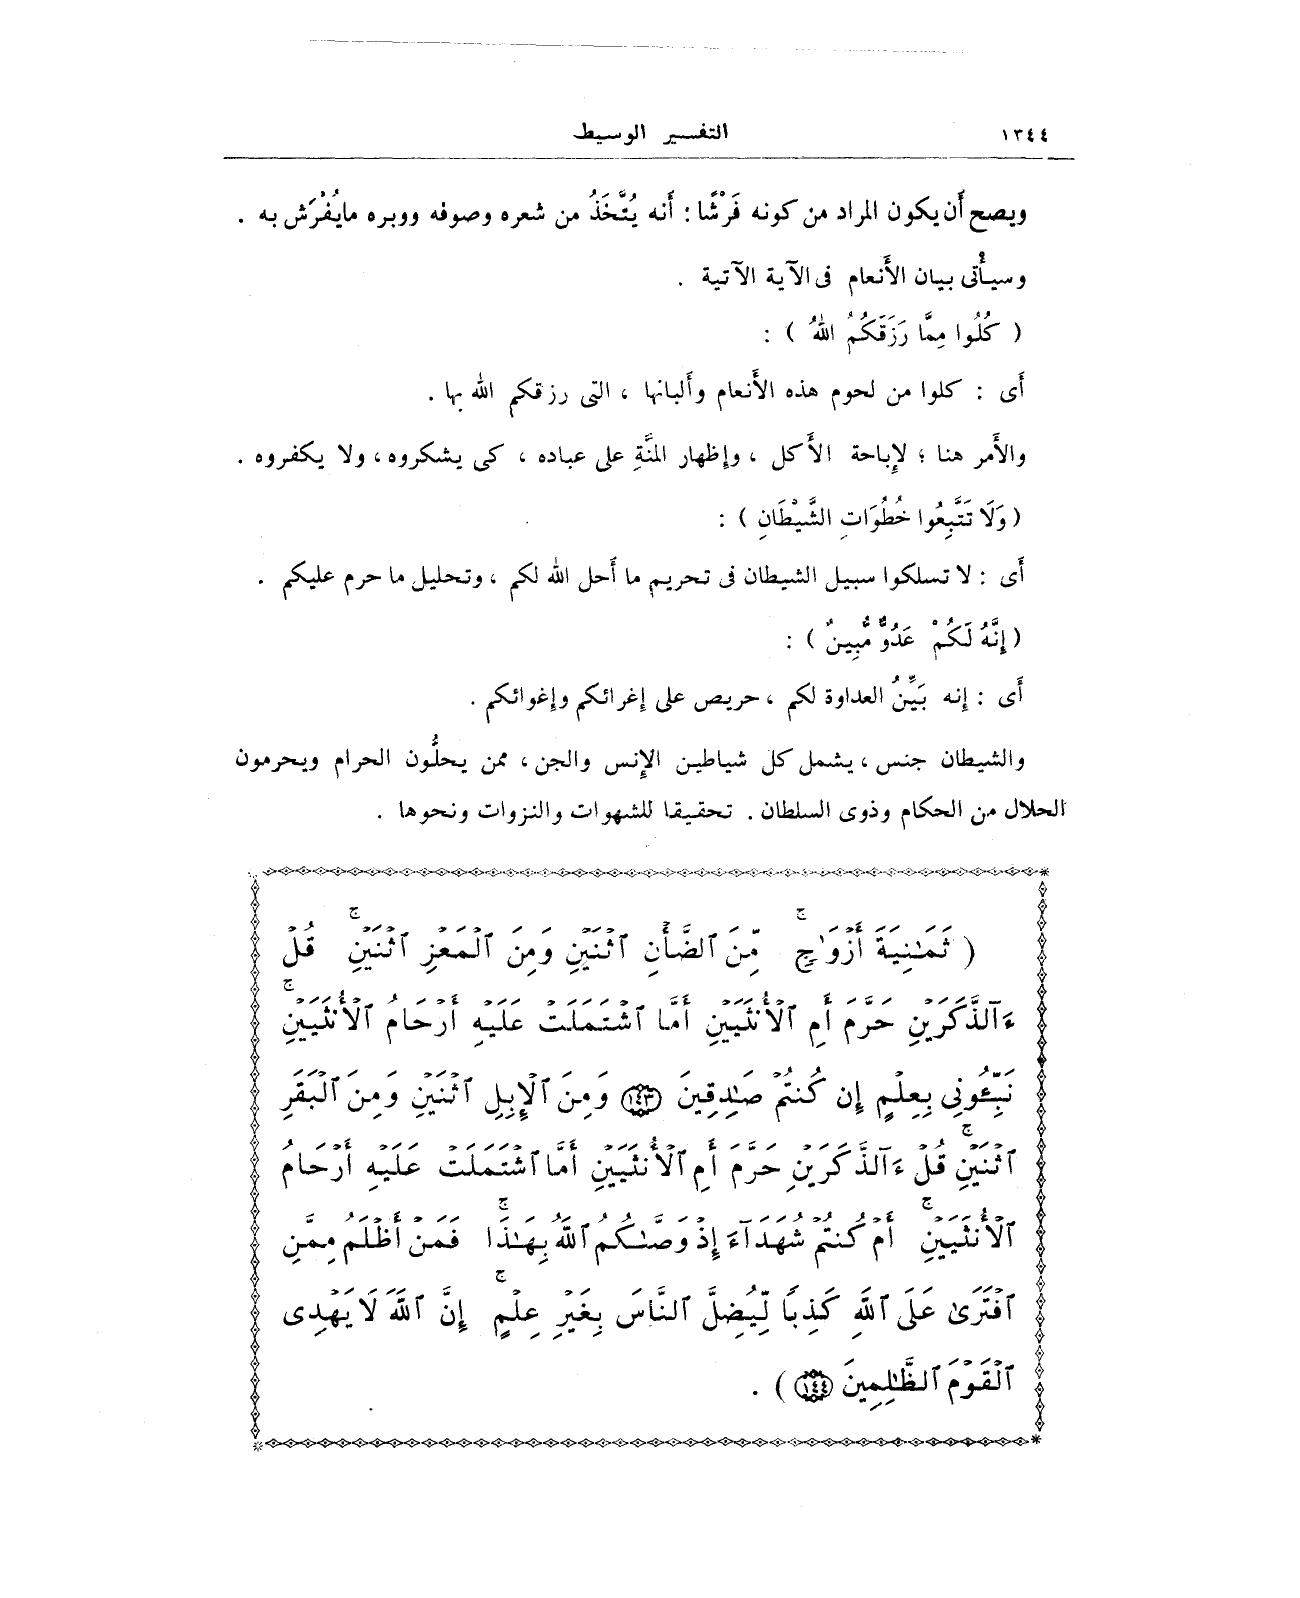 ١٣٤٤ التفسير الوسيط
ويصح أَن يكون المراد من كونه فَرْشًا : أَنه يُتَّخَذُ من شعره وصوفه ووبره مايُفْرَش به .
وسيأْتى بيان الأَنعام فى الآية الآتية .
( كُلُوا مِمَّا رَزَقَكُمُ اللهُ ) :
أَى : كلوا من لحوم هذه الأَنعام وأَلبانها ، التى رزقكم الله بها .
والأَمر هنا ؛ لإِباحة الأَكل ، وإِظهار المنَّةِ على عباده ، كى يشكروه ، ولا يكفروه .
( وَلَا تَتَّبِعُوا خُطُوَاتِ الشَّيْطَانِ ) :
أَى : لا تسلكوا سبيل الشيطان فى تحريم ما أَحل الله لكم ، وتحليل ما حرم عليكم .
( إِنَّهُ لَكُمْ عَدُوٌّ مُّبِينٌ ) :
أَى : إِنه بَيِّنُ العداوة لكم ، حريص على إِغرائكم وإِغوائكم .
والشيطان جنس ، يشمل كل شياطين الإِنس والجن ، ممن يحلُّون الحرام ويحرمون
الحلال من الحكام وذوى السلطان . تحقيقا للشهوات والنزوات ونحوها .
( ثَمَـٰنِيَةَ أَزْوَٰجٍ ۚ مِّنَ ٱلضَّأْنِ ٱثْنَيْنِ وَمِنَ ٱلْمَعْزِ ٱثْنَيْنِ ۚ قُلْ
ءَآلذَّكَرَيْنِ حَرَّمَ أَمِ ٱلْأُنثَيَيْنِ أَمَّا ٱشْتَمَلَتْ عَلَيْهِ أَرْحَامُ ٱلْأُنثَيَيْنِ ۚ
نَبِّـُٔونِى بِعِلْمٍ إِن كُنتُمْ صَـٰدِقِينَ ١٤٣ وَمِنَ ٱلْإِبِلِ ٱثْنَيْنِ وَمِنَ ٱلْبَقَرِ
ٱثْنَيْنِ ۚ قُلْ ءَآلذَّكَرَيْنِ حَرَّمَ أَمِ ٱلْأُنثَيَيْنِ أَمَّا ٱشْتَمَلَتْ عَلَيْهِ أَرْحَامُ
ٱلْأُنثَيَيْنِ ۚ أَمْ كُنتُمْ شُهَدَآءَ إِذْ وَصَّـٰكُمُ ٱللَّهُ بِهَـٰذَا ۚ فَمَنْ أَظْلَمُ مِمَّنِ
ٱفْتَرَىٰ عَلَى ٱللَّهِ كَذِبًا لِّيُضِلَّ ٱلنَّاسَ بِغَيْرِ عِلْمٍ ۚ إِنَّ ٱللَّهَ لَا يَهْدِى
ٱلْقَوْمَ ٱلظَّـٰلِمِينَ ١٤٤ ) .